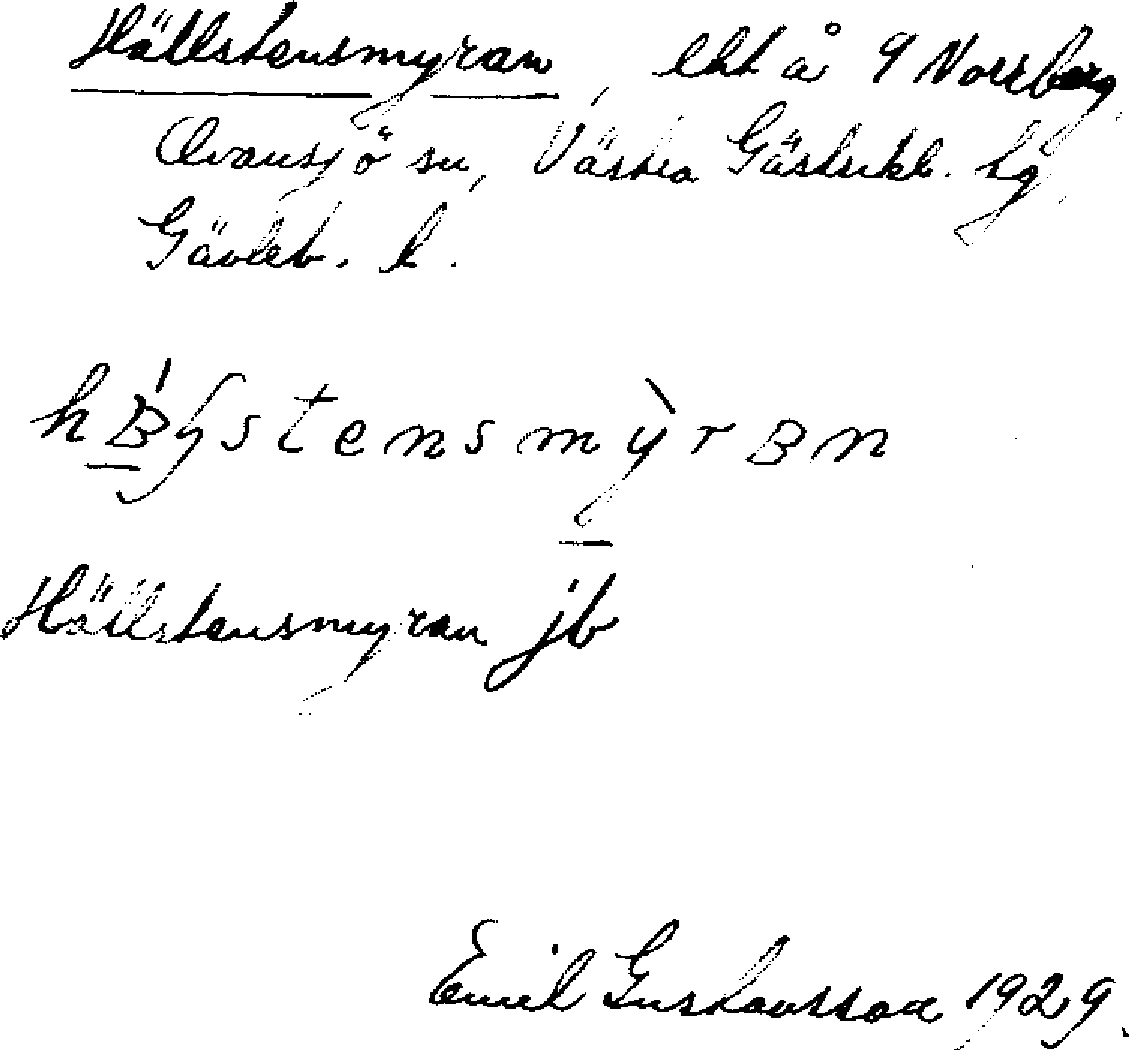 Hällstensmyran, eht å 9 Norrberg
Ovansjö sn, Västra Gästrikl. hg
Gävleb. l.
Hällstensmyran jb
Emil Gustavsson 1929.